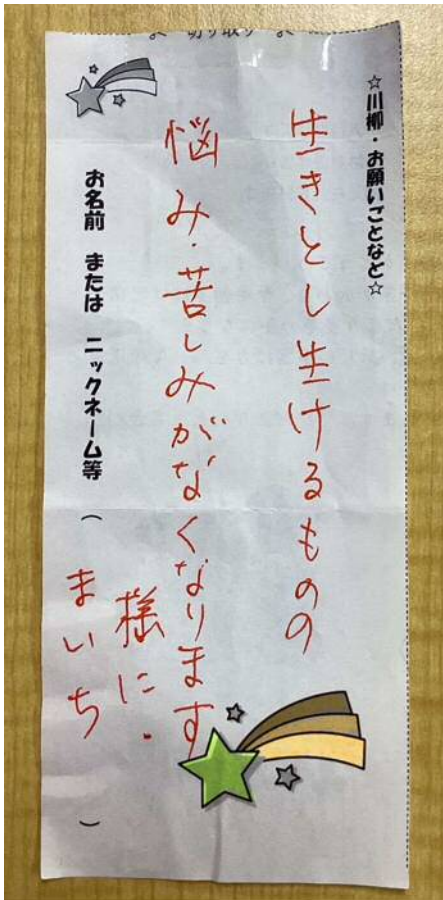 切り取り
☆川柳・お願いごとなど☆
生きとし生けるものの
悩み・苦しみがなくなります
様に.
お名前 または ニックネーム等 (まいち)